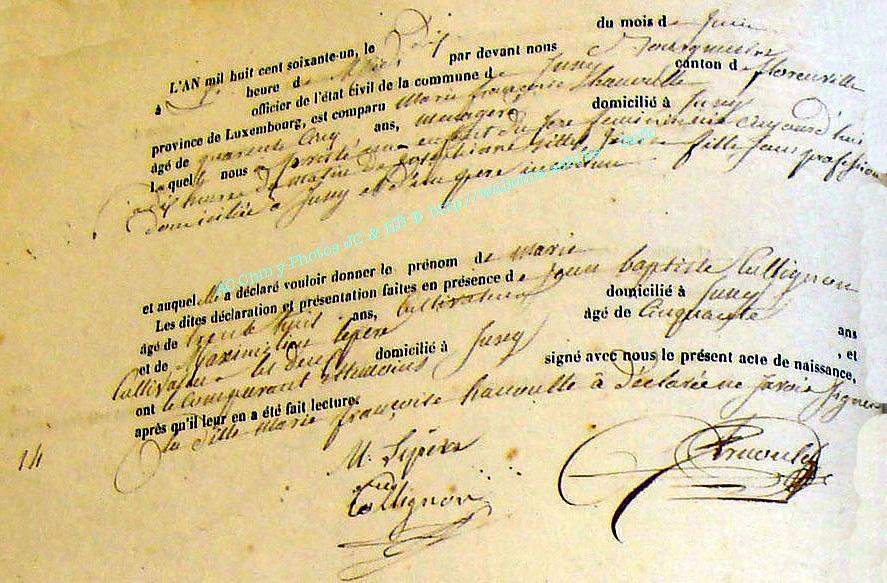 L'AN mil huit cent soixante-un, le Dix du mois de Juin
à heure de par devant nous Bourgmestre
officier de l'état civil de la commune de Jusey canton de florenville
province de Luxembourg, est comparu Marie françoise
âgé de quarente Cinq ans, menagere domicilié à Jusey
laquelle nous a presenté un enfant du sexe feminin aujourd'hui
à dix heures du matin de fille sans profession
domiciliée à Jusey et d'un pere inconnu
et auquel elle a déclaré vouloir donner le prénom de marie
Les dites déclaration et présentation faites en présence de jean baptiste Collignon
âgé de trente huit ans, Cultivateur domicilié à Jusey
et de Maximilien lepere âgé de Cinquante ans
Cultivateur domicilié à Jusey , et
ont le Comparant et temoins signé avec nous le présent acte de naissance,
après qu'il leur en a été fait lecture:
la dite Marie françoise à déclarée ne savoir signer
14
M. Lepère
Collignon
AC Chiny Photos JC & HB © http://